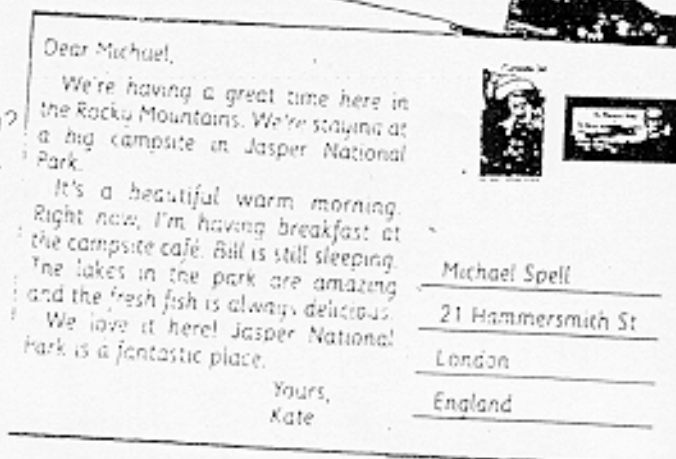 Dear Michael,
We're having a great time here in
the Rocky Mountains. We're staying at
a big campsite in Jasper National
Park.
It's a beautiful warm morning.
Right now, I'm having breakfast at
the campsite café. Bill is still sleeping.
The lakes in the park are amazing
and the fresh fish is always delicious.
We love it here! Jasper National
Park is a fantastic place.
Yours,
Kate
Michael Spell
21 Hammersmith St
London
England